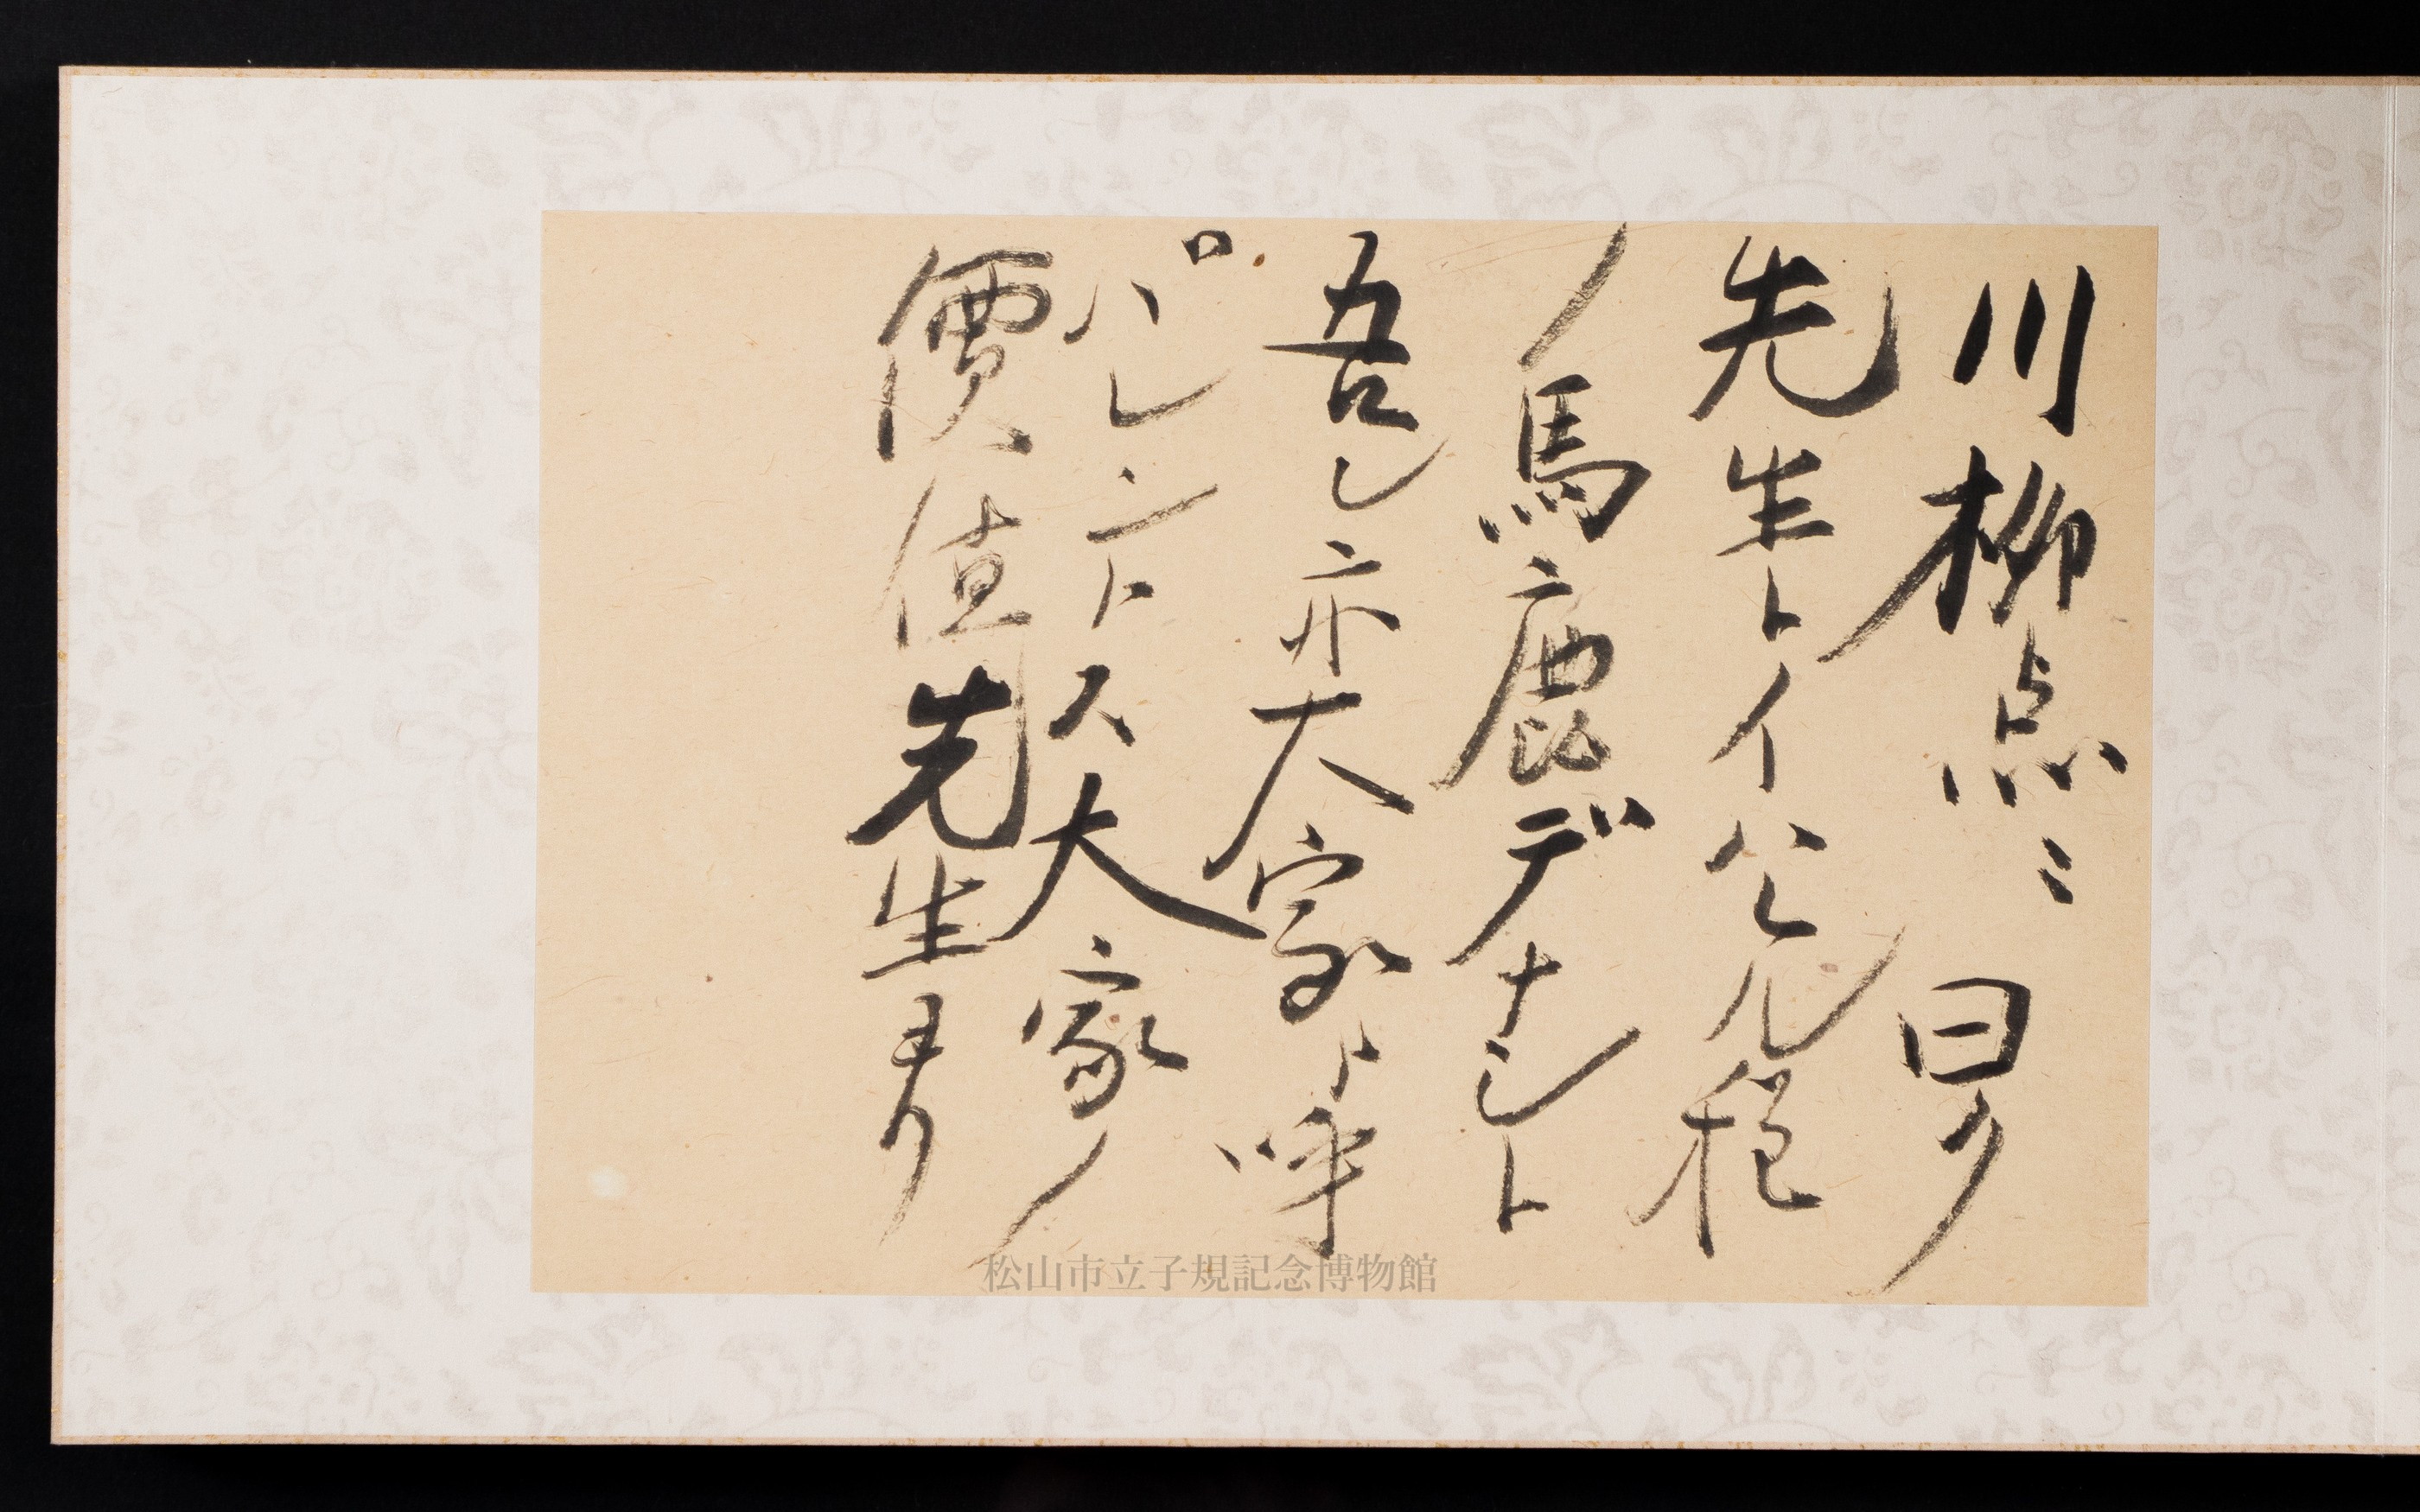 川柳点ニ曰ク
先生トイハレル程
ノ馬鹿デナシト
吾レ亦大家ト呼
バレントス大家ノ
價値先生ヨリ
松山市立子規記念博物館